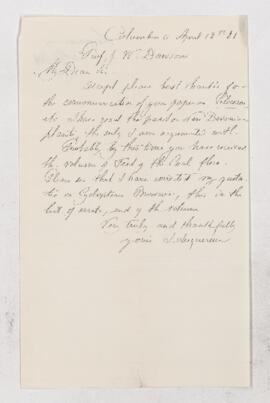 Columbus O April 12th 81
Prof. J. W. Dawson
My Dear Sir.
Accept please best thanks for
the communication of your paper on
etc. I have read the paper on Devonian
plants, the only I am acquainted with.
Probably by this time you have received
the volumes & text of the Coal flora.
Please see that I have corrected my quota-
tion on Cyclopteris Brownii, this in the
list of errata, end of the volume
Very truly and thankfully
yours L Lesquereux